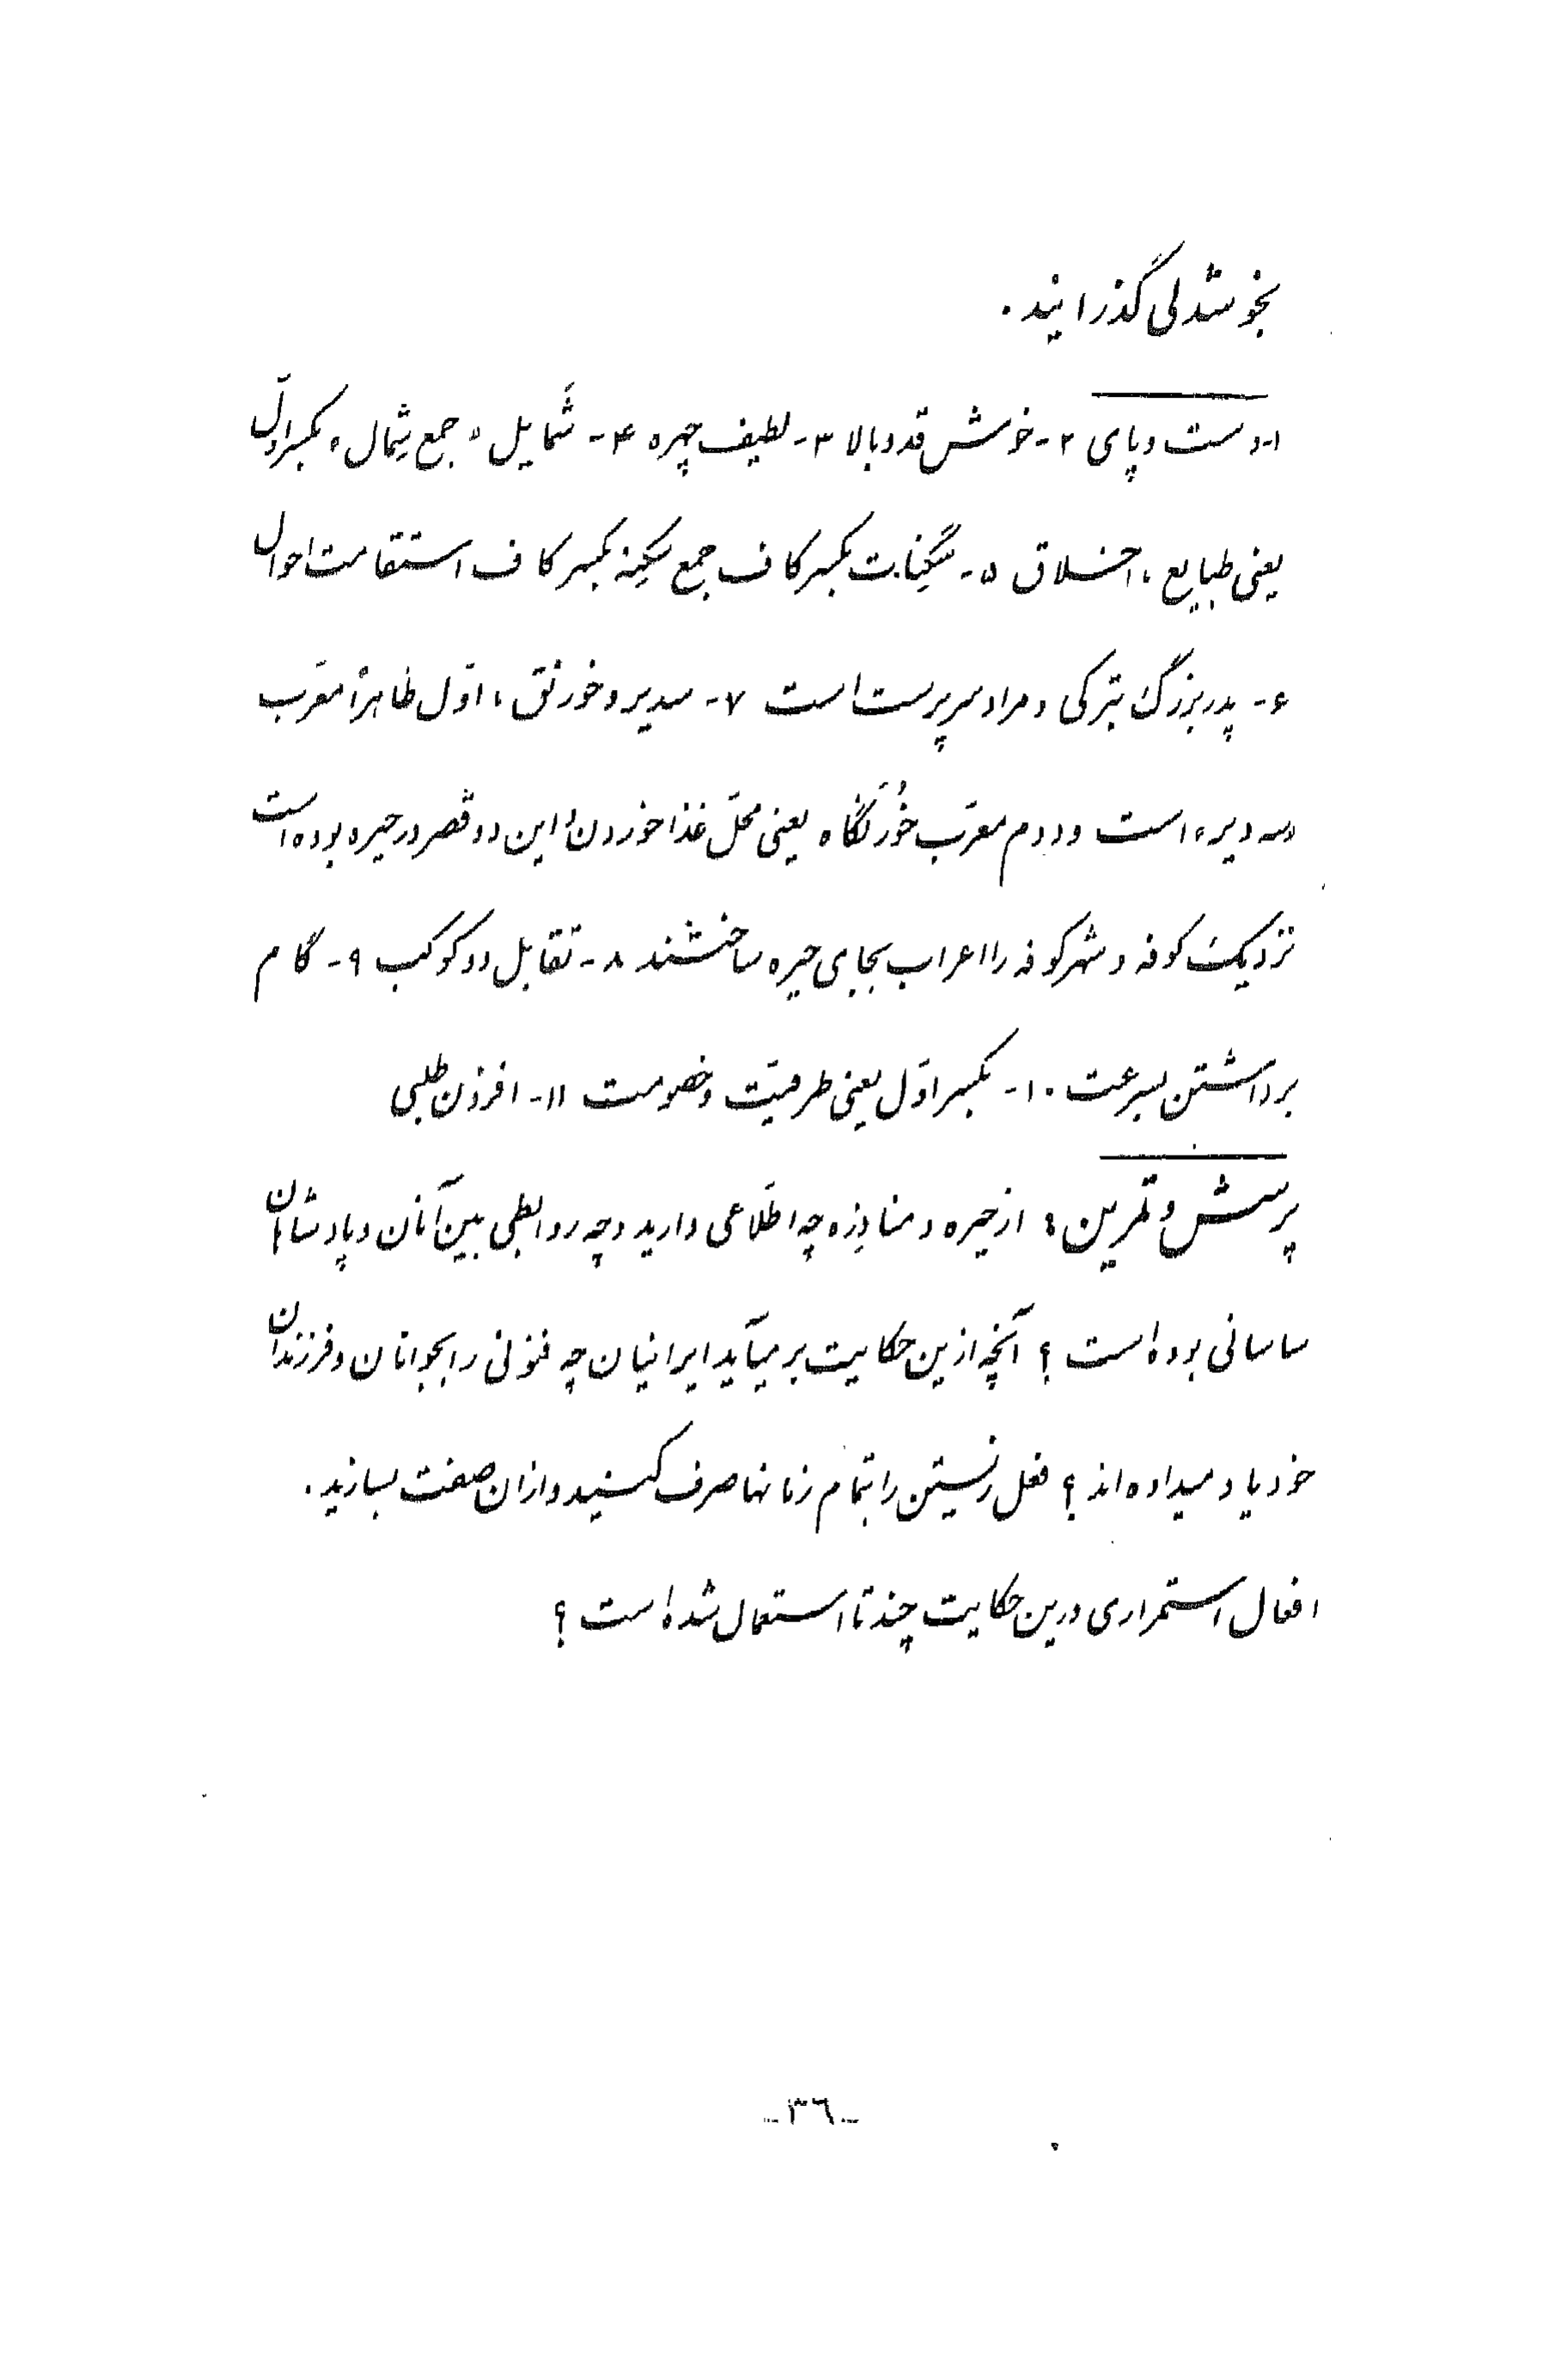 بخوشدلی گذرانید.
۱- دست و پای ۲- خوش قد و بالا ۳- لطیف چهره ۴- شَمایل، جمع شِمال، بکسر اوّل
یعنی طبایع، اخلاق ۵- سَکِنات بکسر کاف جمع سَکِنه بکسر کاف استقامت احوال
۶- پدر بزرگ بترکی و مراد سرپرست است ۷- سدیر و خورنق، اوّل ظاهراً معرّب
«سه دیر» است و دوم معرّب خُورَنگاه یعنی محلّ غذا خوردن، این دو قصر در حیره بوده است
نزدیک کوفه و شهر کوفه را اعراب بجای حیره ساختند ۸- تقابل دو کوکب ۹- گام
برداشتن بسرعت ۱۰- بکسر اوّل یعنی طرفیّت و خصومت ۱۱- افزون طلبی
پرسش و تمرین: از حیره و مناذِره چه اطّلاعی دارید و چه روابطی بین آنان و پادشاهان
ساسانی بوده است؟ آنچه ازین حکایت برمیآید ایرانیان چه فنونی را بجوانان و فرزندان
خود یاد میداده‌اند؟ فعل زیستن را بتمام زمانها صرف کنید و از ان صفت بسازید.
افعال استمراری درین حکایت چند تا استعمال شده است؟
-۳٦-